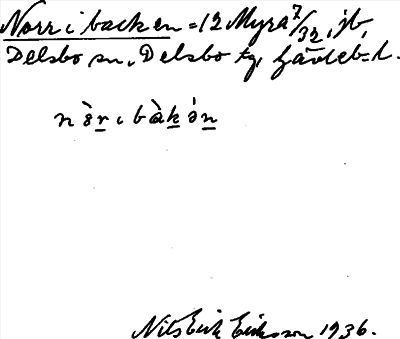 Norr i backen = 12 Myra 7/32, jb,
Delsbo sn, Delsbo tg, Gävleb. l.
nòr̲ ı bàk̲ə́n̲
Nils Erik Eriksson 1936.